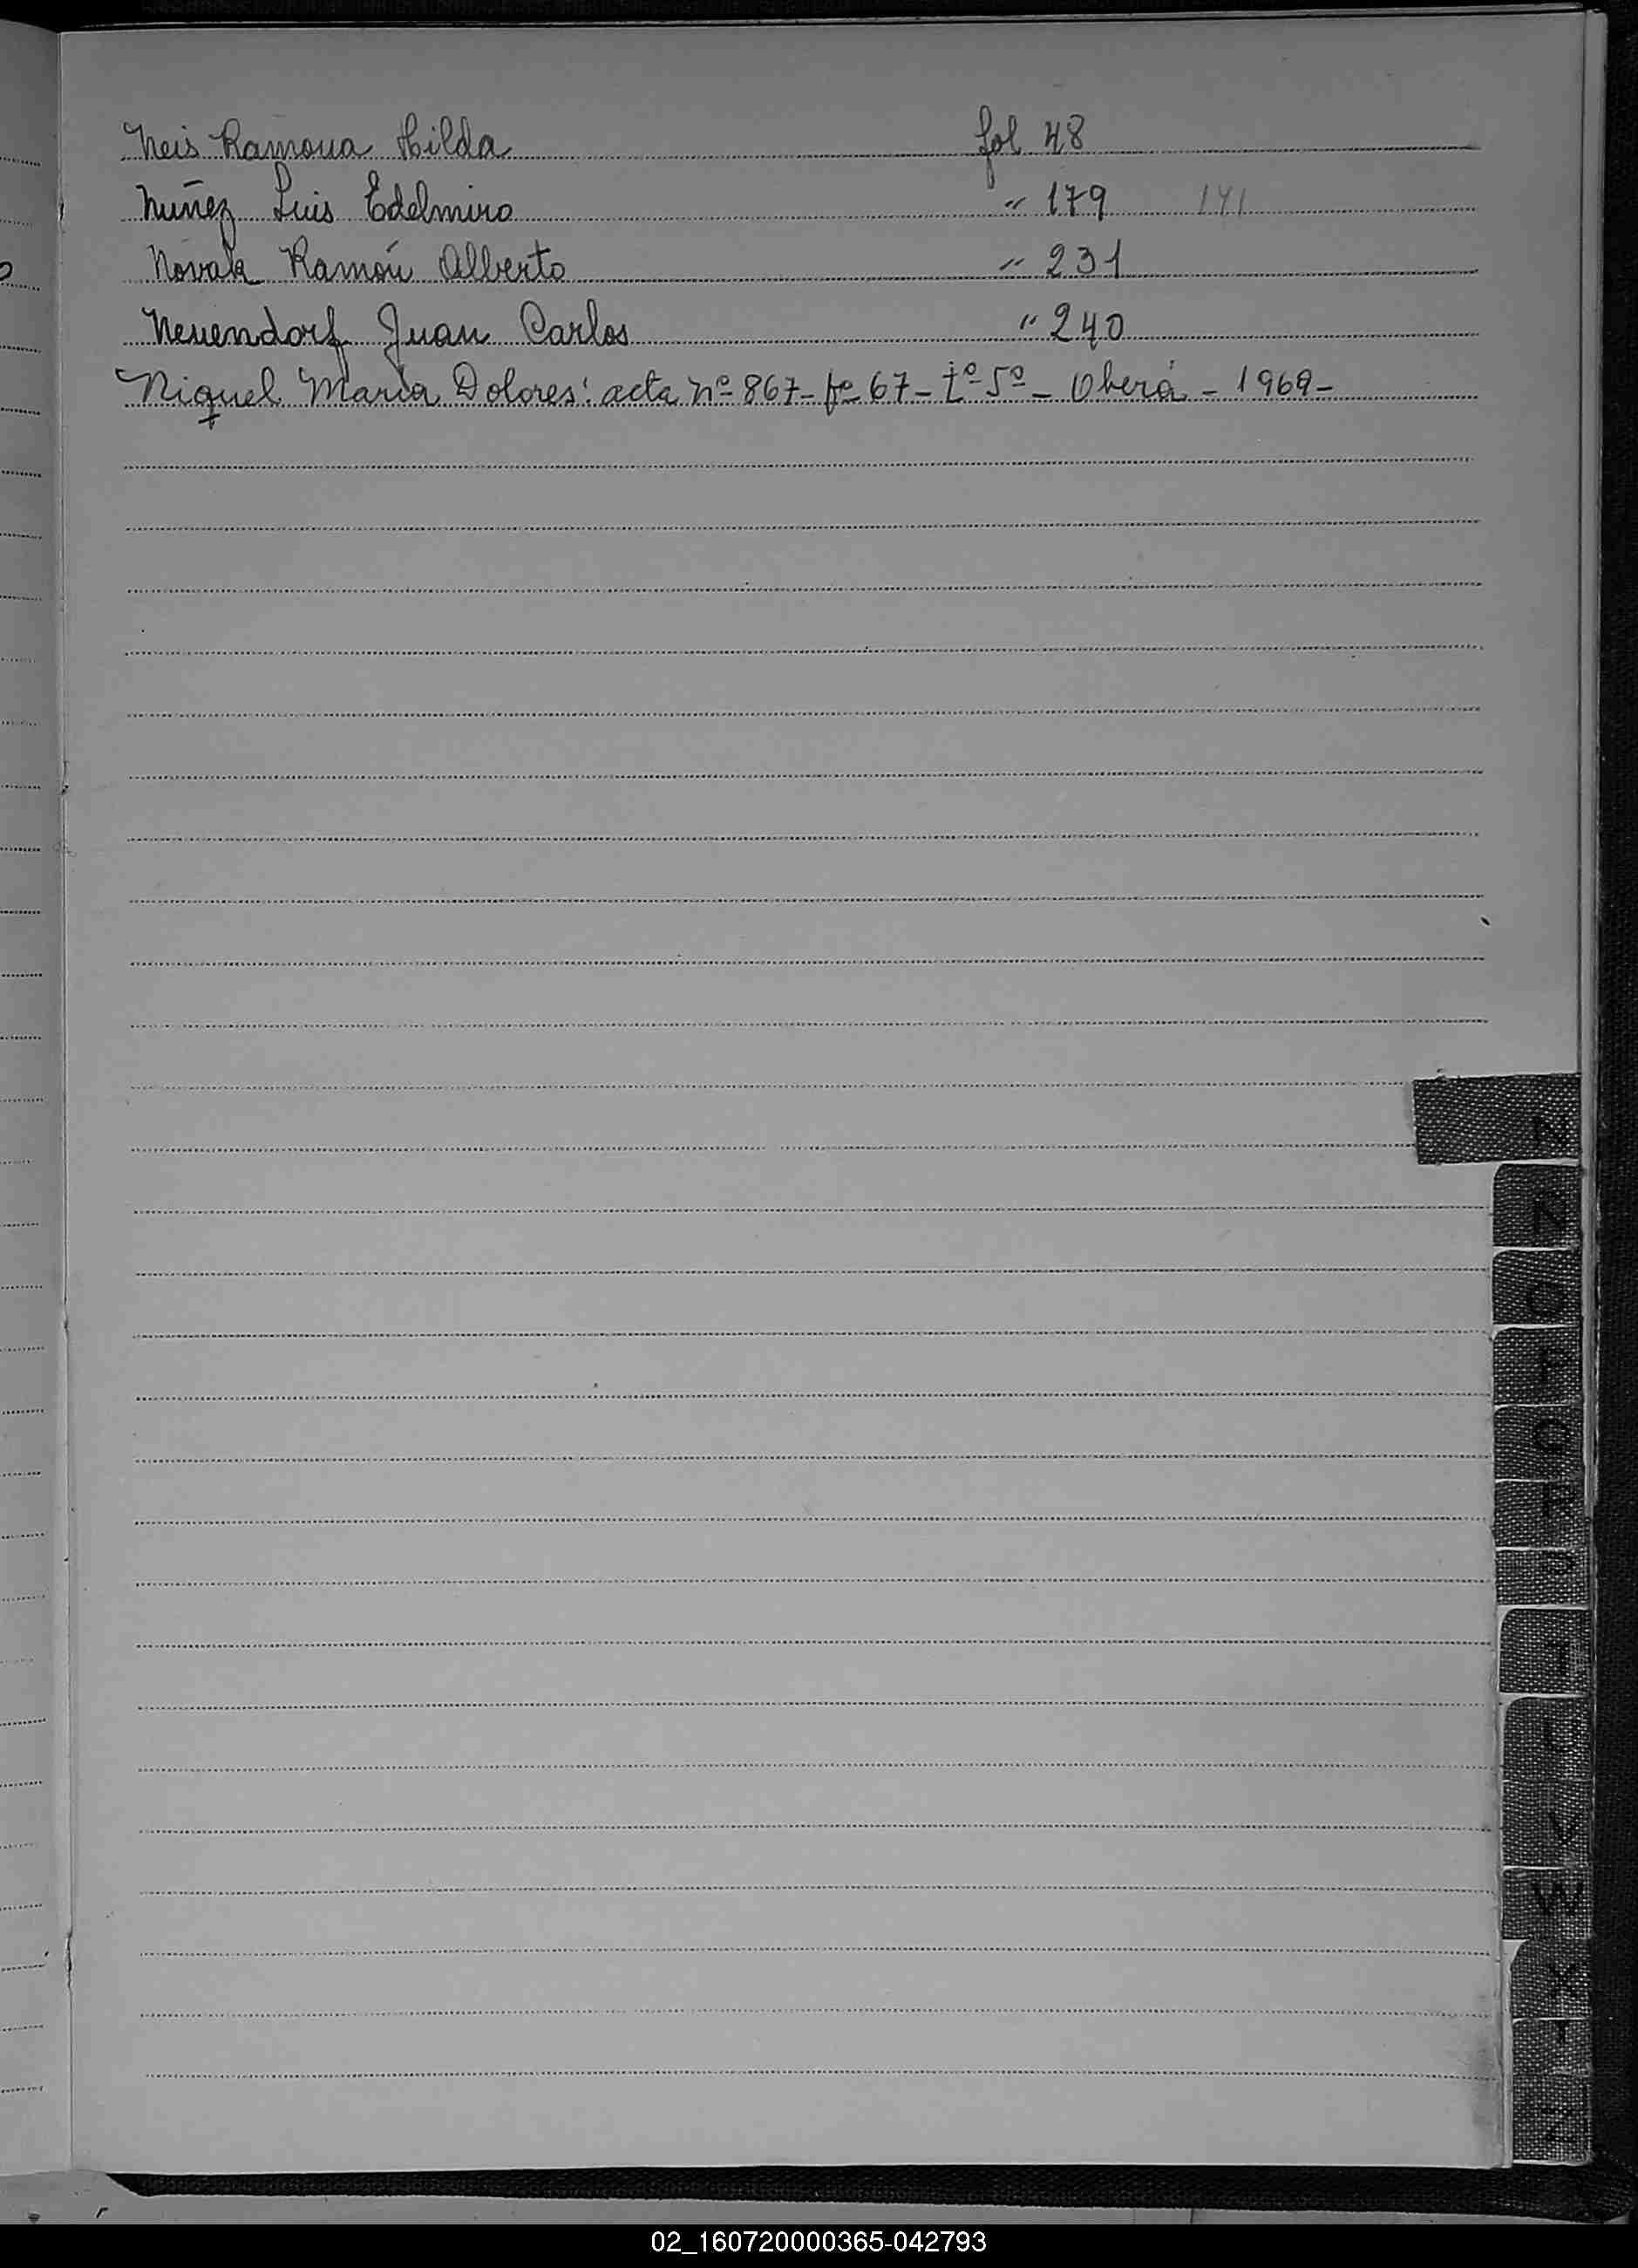 Neis Ramona Hilda fol 48
Nuñez Luis Edelmiro " 179 141
Novak Ramón Alberto " 231
Neuendorf Juan Carlos " 240
Niquel María Dolores: acta nº 867- fº 67- tº 5º - Oberá - 1969-
N
Ñ
O
P
Q
R
S
T
U
V
W
X
Y
Z
02_160720000365-042793